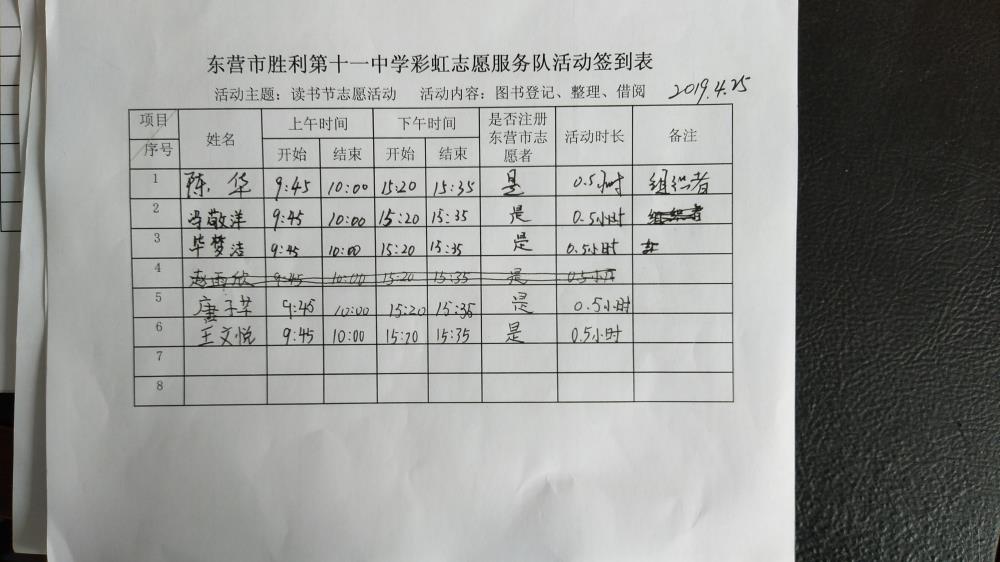 东营市胜利第十一中学彩虹志愿服务队活动签到表
活动主题：读书节志愿活动 活动内容：图书登记、整理、借阅 2019.4.25
项目 序号 姓名 上午时间 下午时间 是否注册东营市志愿者 活动时长 备注
开始 结束 开始 结束
1 陈华 9:45 10:00 15:20 15:35 是 0.5小时 组织者
2 冯敬洋 9:45 10:00 15:20 15:35 是 0.5小时
3 毕梦洁 9:45 10:00 15:20 15:35 是 0.5小时
4 赵雨欣 9:45 10:00 15:20 15:35 是 0.5小时
5 唐子苹 9:45 10:00 15:20 15:35 是 0.5小时
6 王文悦 9:45 10:00 15:20 15:35 是 0.5小时
7
8